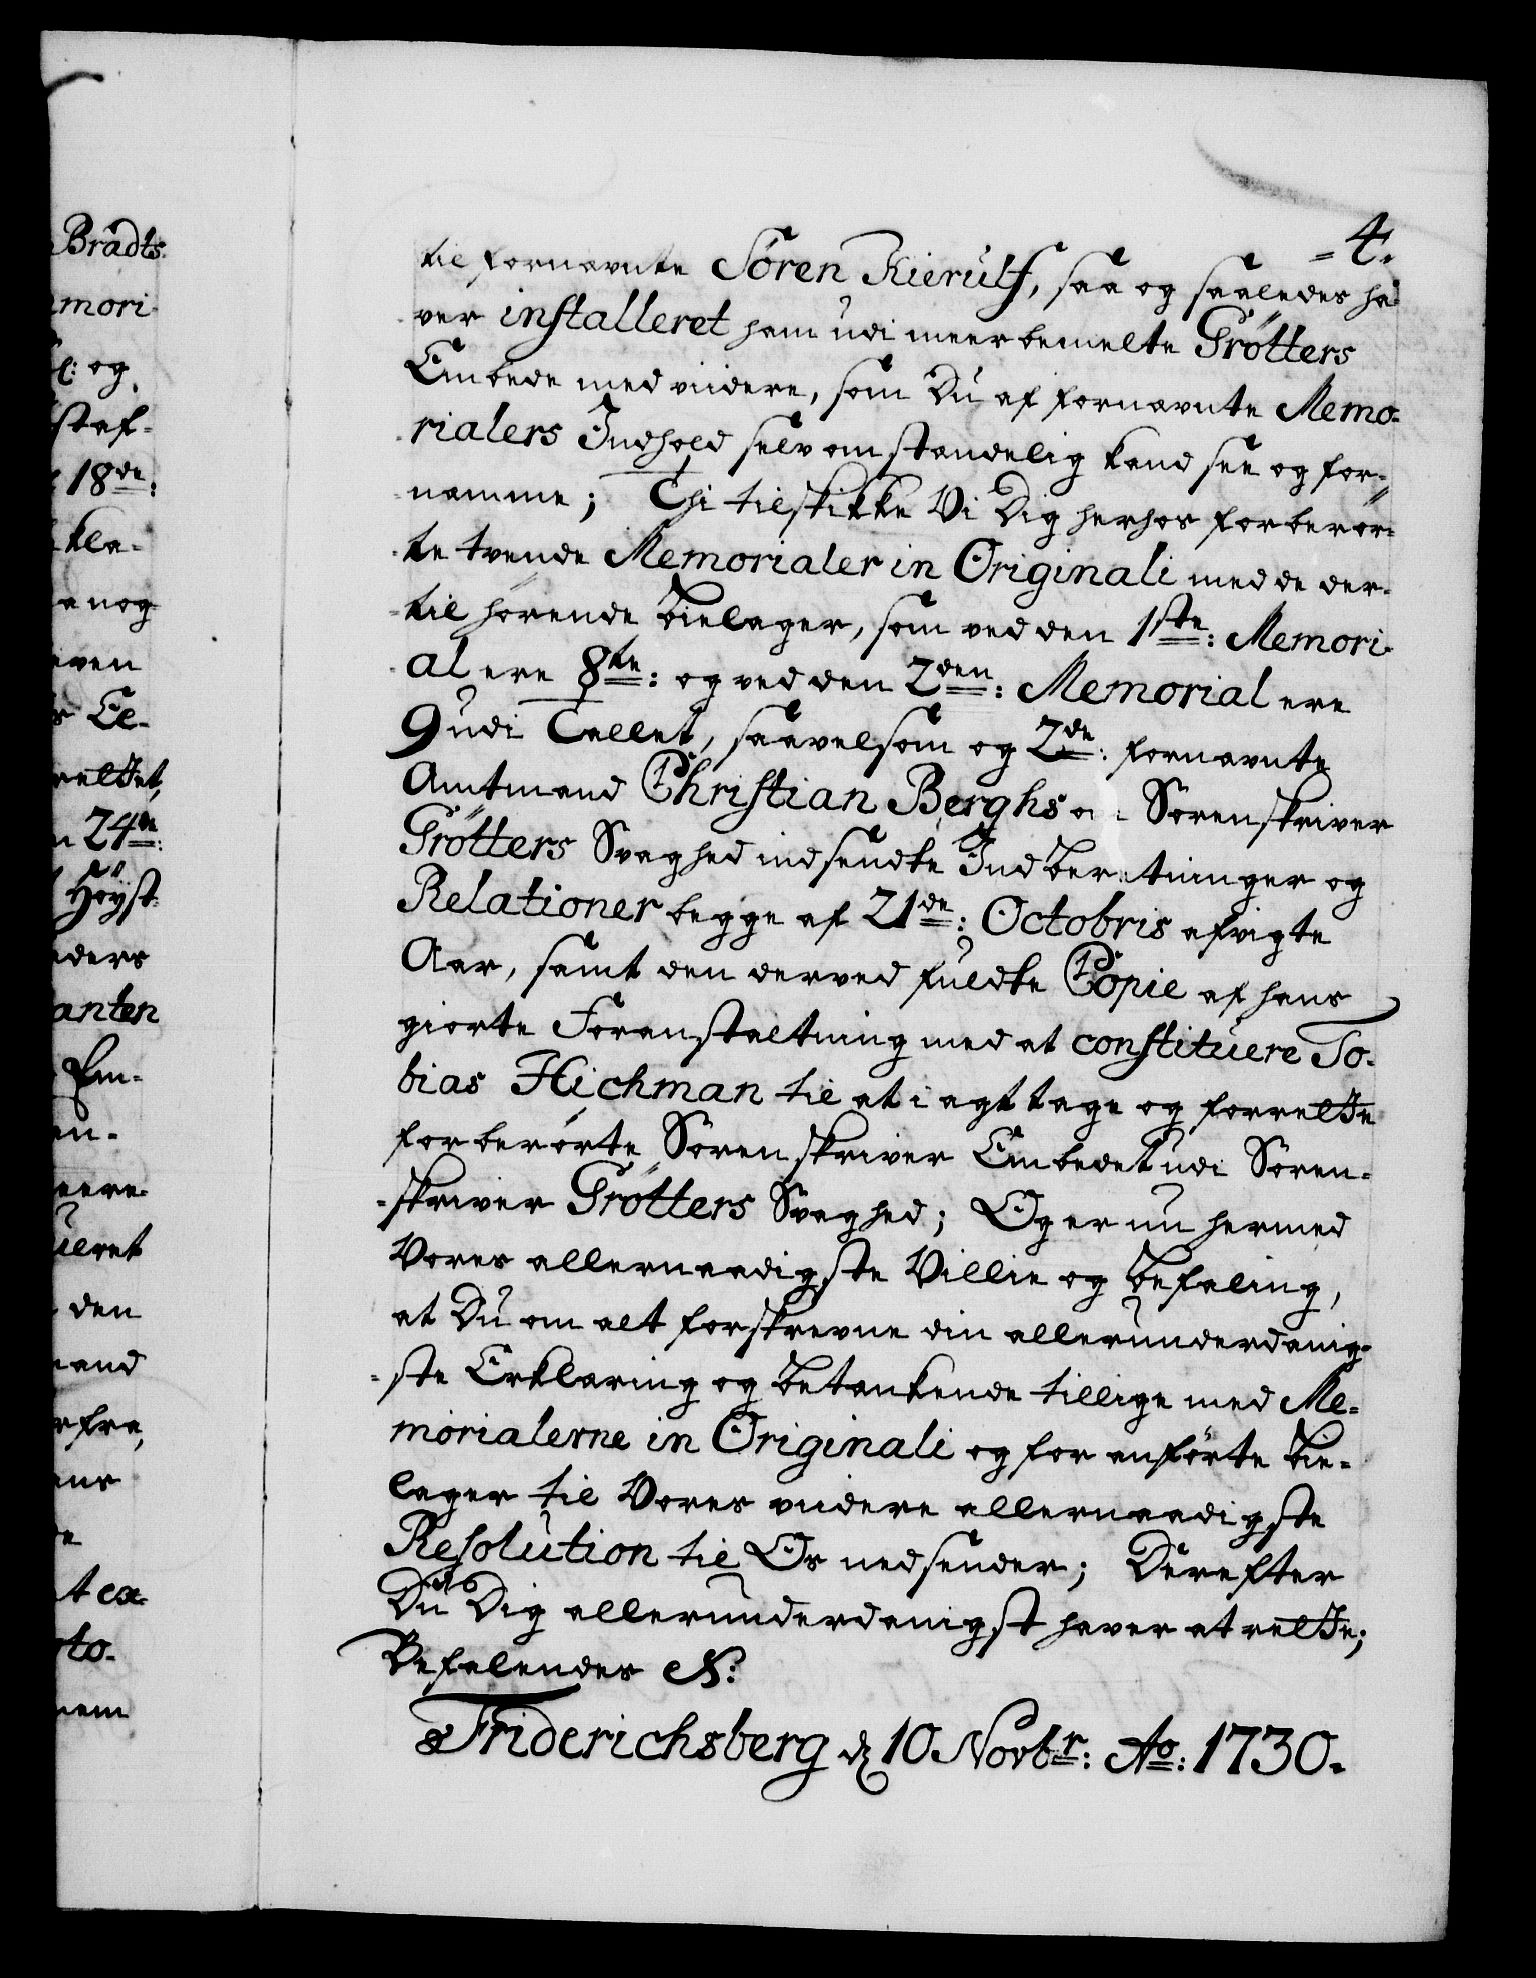 Bradts
mori
og
staf-
18de:
kla-
a nog
24de:
Höyst-
anten
den
to-
4.
til fornævnte Sören Kierulf, saa og saaledes ha
ver installeret ham udi meerbemelte Grötters
Embede med videre, som Du af fornævnte Memo-
rialers Indhold selv omstændelig kand see og for-
nemme; Thi tilskikke Vi Dig herhos forberör-
te tvende Memorialer in Originali med de der-
til hörende Bielager, som ved den 1ste: Memori-
al ere 8te: og ved den 2den: Memorial ere
9 udi Tallet, saavelsom og 2de: fornævnte
Amtmand Christian Berghs o Sorenskriver
Grötters Svaghed indsendte Indber tninger og
Relationer begge af 21de: Octobris afvigte
Aar, samt den derved fuldte Copie af hans
giorte Foranstaltning med at constituere To-
bias Hichman til at i agttage og forrette
forberörte Sorenskriver Embedet udi Soren-
-skriver Grötters Svaghed; Og er nu hermed
Vores allernaadigste Villie og Befaling,
at Du om alt forskrevne din allerunderdanig-
-ste Erklæring og Betænkende tillige med Me-
morialerne in Originali og for anförte Bie-
lager til Vores videre allernaadigste
Resolution til Os nedsender; Derefter
Du Dig allerunderdanigst haver at rette;
Befalendes N:
Friderichsberg d 10 Novbr: Ao: 1730.